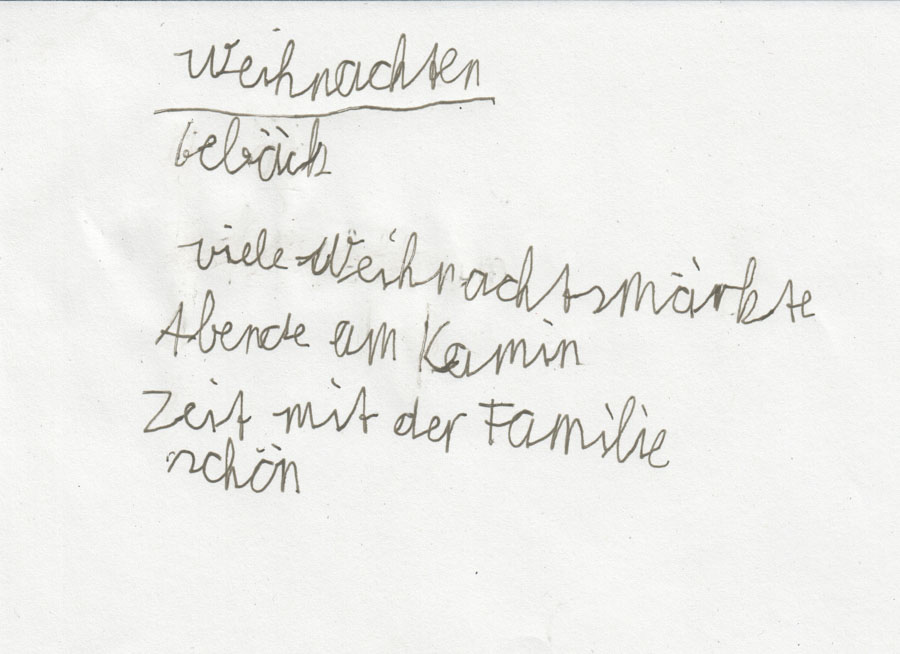 Weihnachten
Gebäck
viele Weihnachtsmärkte
Abende am Kamin
Zeit mit der Familie
schön